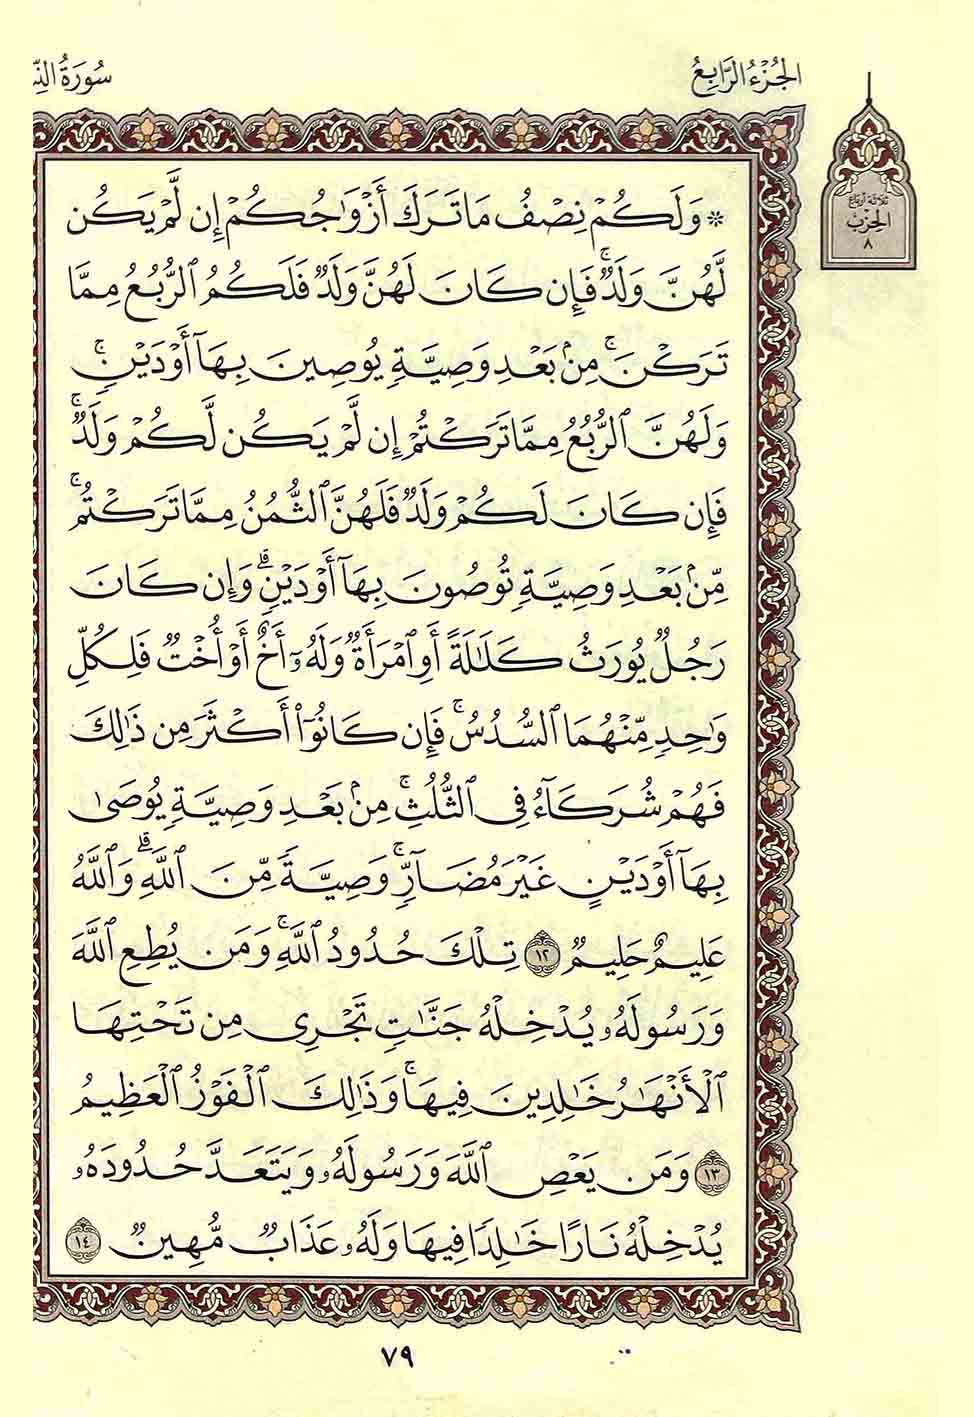 الجُزْءُ الرَّابِعُ
سُورَةُ
ثلاثة أرباع
الحِزْب
٨
* وَلَكُمْ نِصْفُ مَا تَرَكَ أَزْوَٰجُكُمْ إِن لَّمْ يَكُن
لَّهُنَّ وَلَدٌ ۚ فَإِن كَانَ لَهُنَّ وَلَدٌ فَلَكُمُ ٱلرُّبُعُ مِمَّا
تَرَكْنَ ۚ مِنۢ بَعْدِ وَصِيَّةٍ يُوصِينَ بِهَآ أَوْ دَيْنٍ ۚ
وَلَهُنَّ ٱلرُّبُعُ مِمَّا تَرَكْتُمْ إِن لَّمْ يَكُن لَّكُمْ وَلَدٌ ۚ
فَإِن كَانَ لَكُمْ وَلَدٌ فَلَهُنَّ ٱلثُّمُنُ مِمَّا تَرَكْتُم ۚ
مِّنۢ بَعْدِ وَصِيَّةٍ تُوصُونَ بِهَآ أَوْ دَيْنٍ ۗ وَإِن كَانَ
رَجُلٌ يُورَثُ كَلَٰلَةً أَوِ ٱمْرَأَةٌ وَلَهُۥٓ أَخٌ أَوْ أُخْتٌ فَلِكُلِّ
وَٰحِدٍ مِّنْهُمَا ٱلسُّدُسُ ۚ فَإِن كَانُوٓا۟ أَكْثَرَ مِن ذَٰلِكَ
فَهُمْ شُرَكَآءُ فِى ٱلثُّلُثِ ۚ مِنۢ بَعْدِ وَصِيَّةٍ يُوصَىٰ
بِهَآ أَوْ دَيْنٍ غَيْرَ مُضَآرٍّ ۚ وَصِيَّةً مِّنَ ٱللَّهِ ۗ وَٱللَّهُ
عَلِيمٌ حَلِيمٌ ١٢ تِلْكَ حُدُودُ ٱللَّهِ ۚ وَمَن يُطِعِ ٱللَّهَ
وَرَسُولَهُۥ يُدْخِلْهُ جَنَّٰتٍ تَجْرِى مِن تَحْتِهَا
ٱلْأَنْهَٰرُ خَٰلِدِينَ فِيهَا ۚ وَذَٰلِكَ ٱلْفَوْزُ ٱلْعَظِيمُ
١٣ وَمَن يَعْصِ ٱللَّهَ وَرَسُولَهُۥ وَيَتَعَدَّ حُدُودَهُۥ
يُدْخِلْهُ نَارًا خَٰلِدًا فِيهَا وَلَهُۥ عَذَابٌ مُّهِينٌ ١٤
٧٩